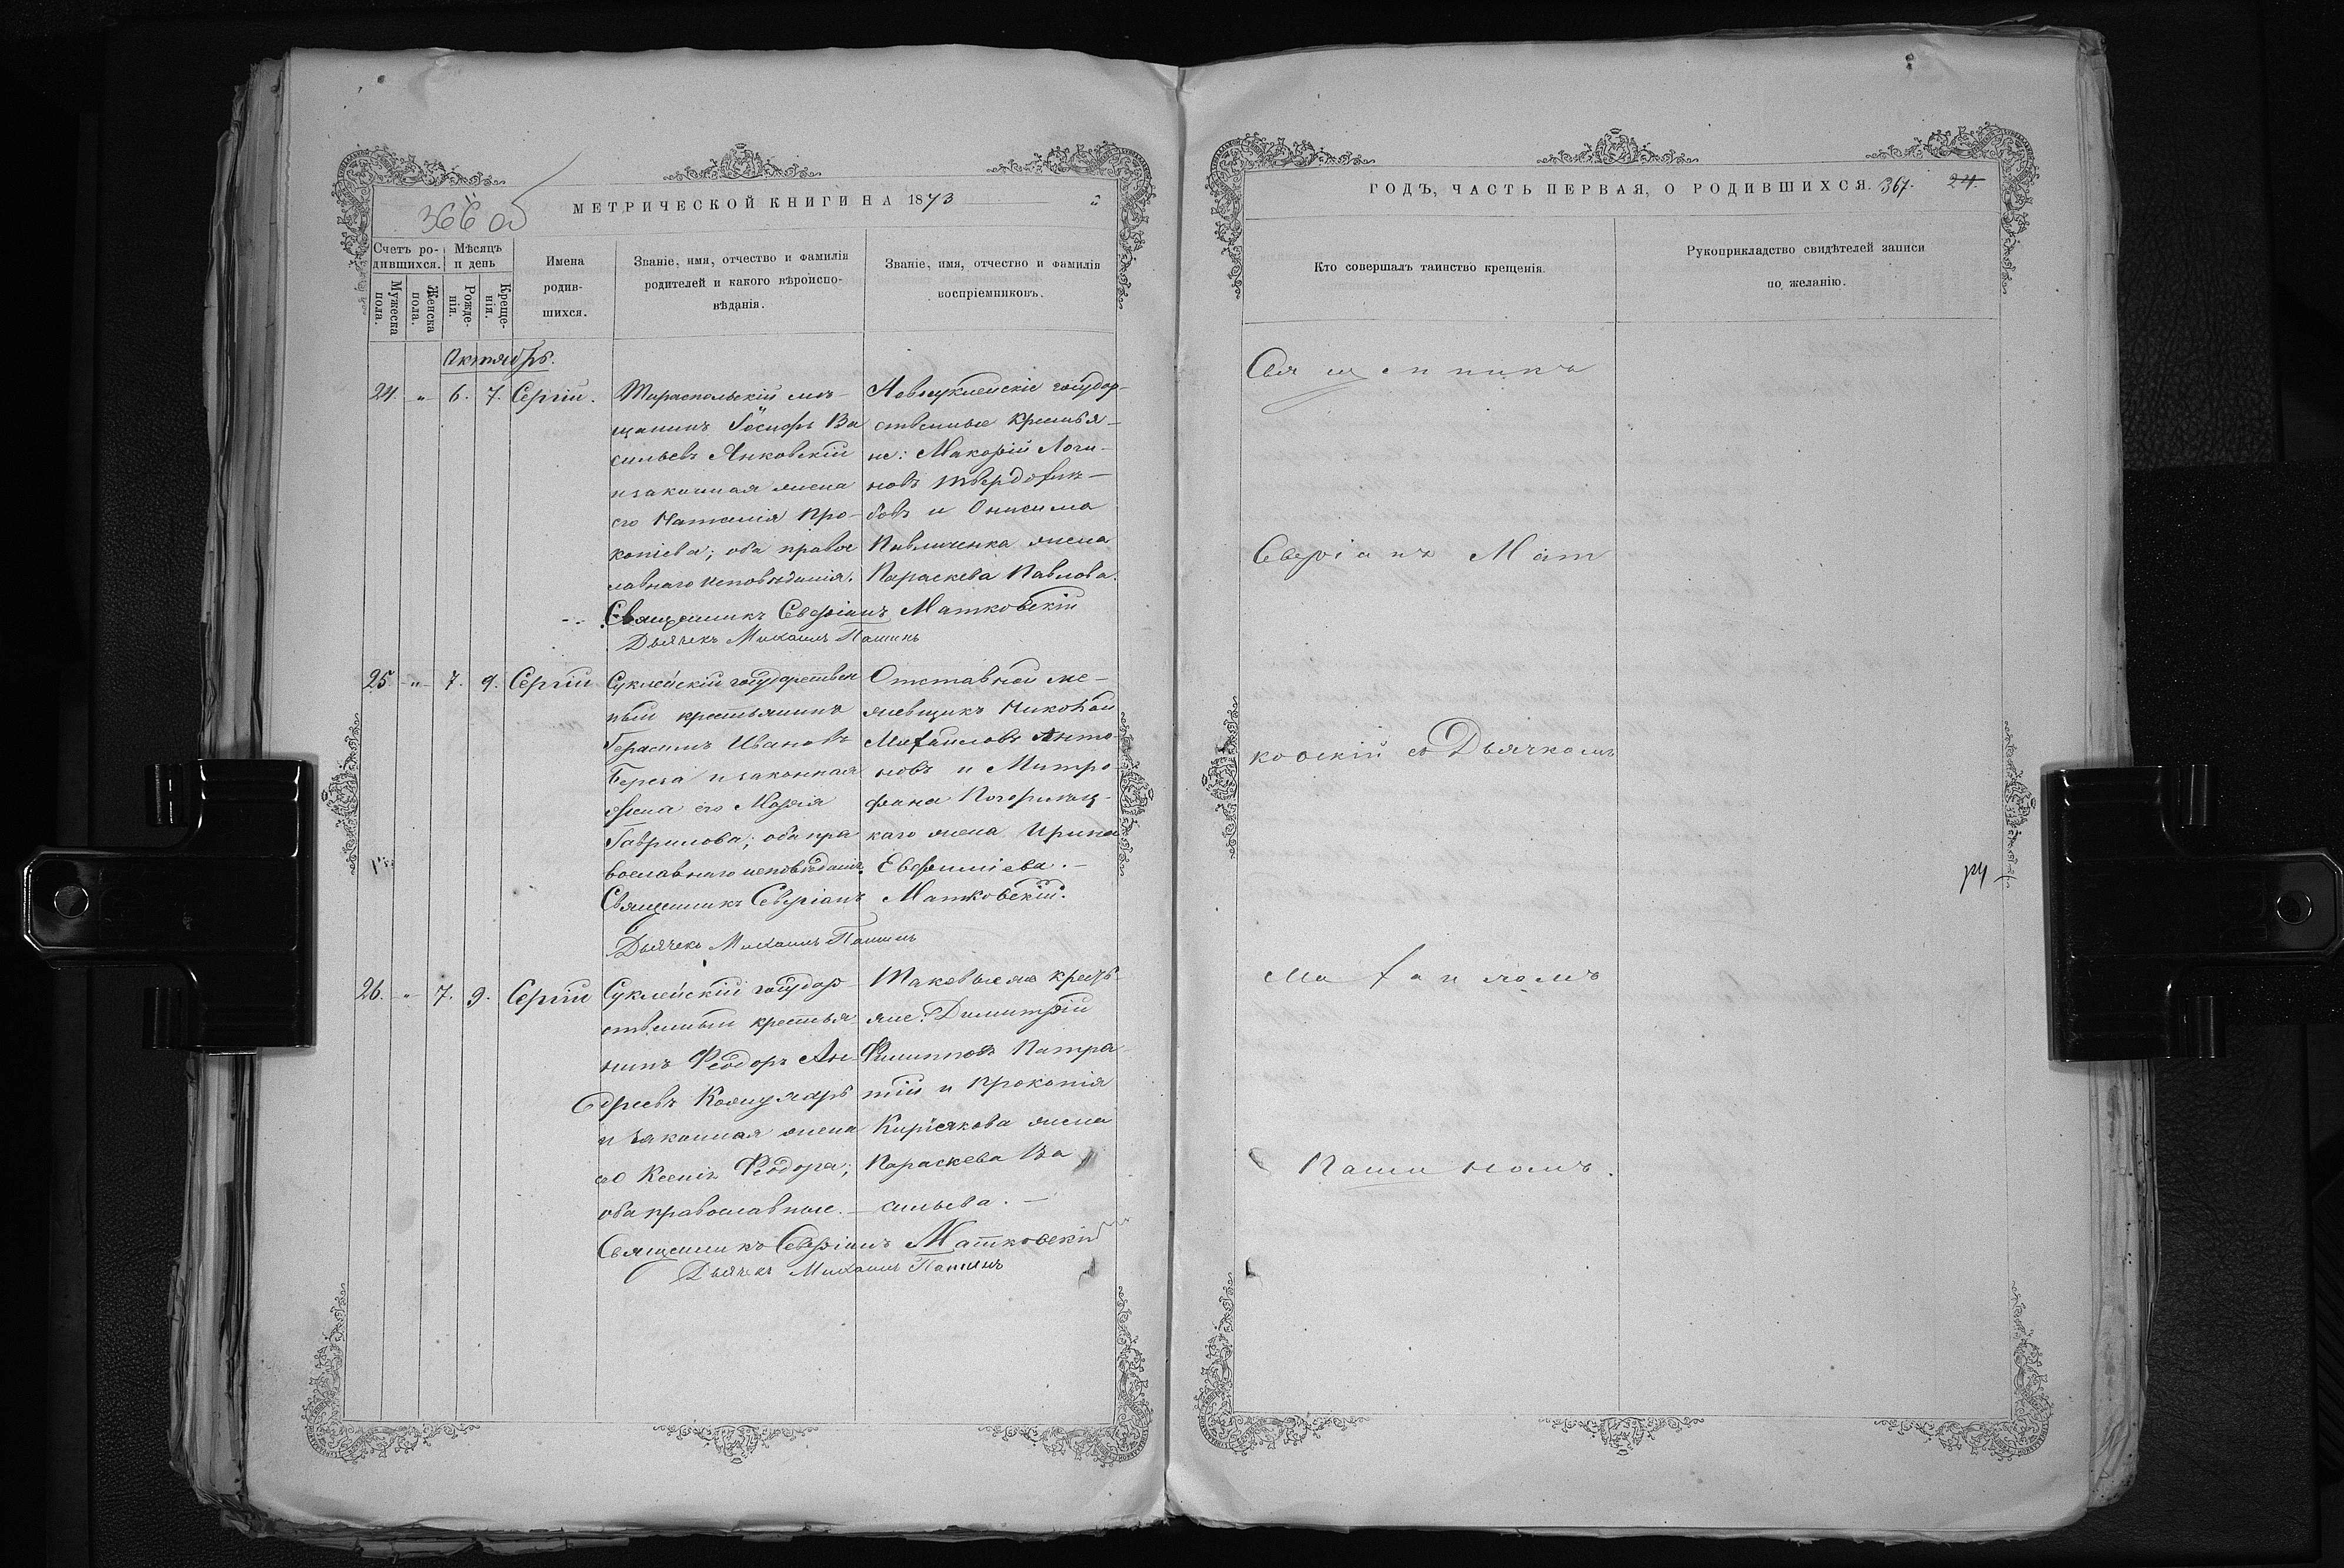 366 об
МЕТРИЧЕСКОЙ КНИГИ НА 1873
Счетъ ро-
дившихся.
Мужеска
пола.
Женска
пола.
Мѣсяцъ
и день
Рожде-
нія.
Креще-
нія.
Имена
родив-
шихся.
Званіе, имя, отчество и фамилія
родителей и какого вѣроиспо-
вѣданія.
Званіе, имя, отчество и фамилія
воспріемниковъ.
Октябрь.
24. " 6. 7. Сергій.
Тираспольскій мѣ-
щанинъ Іосифъ Ва
сильевъ Янковскій
и законная жена
его Наталія Про-
копіева; оба право
славнаго исповѣданія.
Новосуклейскіе государ-
ственные крестья-
не: Макарій Логи-
новъ Твердохлѣ-
бовъ и Онисима
Павличенка жена
Параскева Павлова.
Священникъ Северіанъ Матковскій
Дьячекъ Михаилъ Пашинъ
25 " 7. 9. Сергій
Суклейскій государствен
ный крестьянинъ
Герасимъ Ивановъ
Береза и законная
жена его Марія
Гаврилова; оба пра
вославнаго исповѣданія.
Отставной ме-
жевщикъ Николай
Михаиловъ Анто
новъ и Митро
фана
каго жена Ирина
Евфиміева.
Священникъ Северіанъ Матковскій.
Дьячекъ Михаилъ Пашинъ
26. " 7. 9. Сергій
Суклейскій государ
ственный крестья
нинъ Ѳеодоръ Ан
дреевъ
и законная жена
его Ксенія Ѳеодора;
оба православные.
Таковые же кресть-
яне: Димитрій
Филипповъ
и Прокопія
Киріякова жена
Параскева Ва
сильева.
Священникъ Северіанъ Матковскій
Дьячекъ Михаилъ Пашинъ
ГОДЪ, ЧАСТЬ ПЕРВАЯ, О РОДИВШИХСЯ. 367. 24.
Кто совершалъ таинство крещенія.
Рукоприкладство свидѣтелей записи
по желанію.
Священникъ
Северіанъ Мат
ковскій съ Дьячкомъ
ру
Михаиломъ
Пашиномъ.